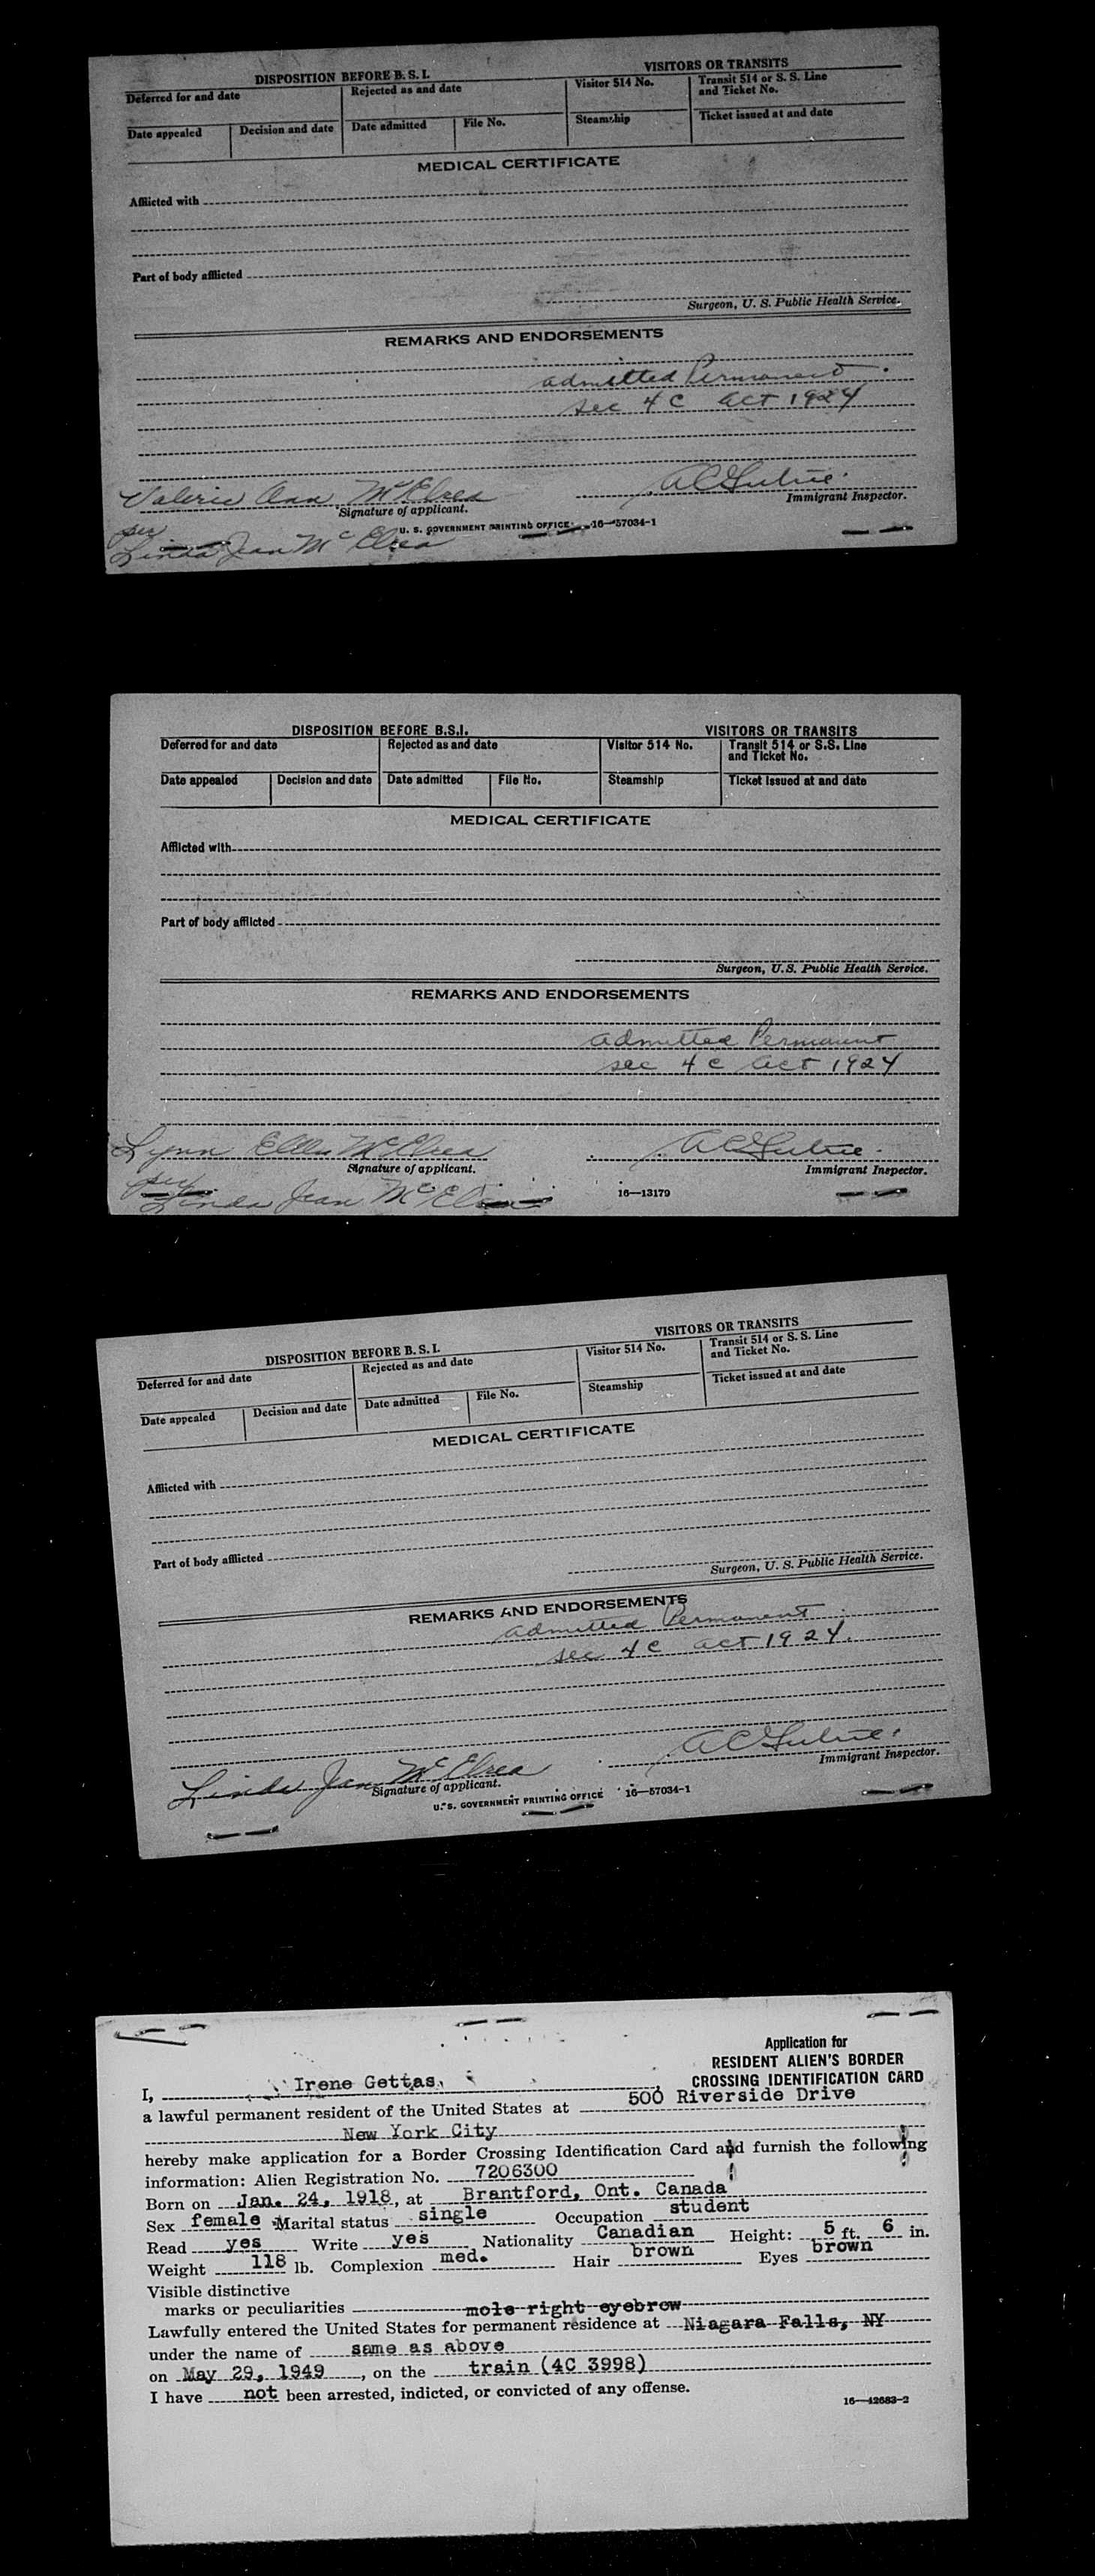 DISPOSITION BEFORE B. S. I.
VISITORS OR TRANSITS
Deferred for and date
Rejected as and date
Visitor 514 No.
Transit 514 or S. S. Line
and Ticket No.
Date appealed
Decision and date
Date admitted
File No.
Steamship
Ticket issued at and date
MEDICAL CERTIFICATE
Afflicted with
Part of body afflicted
Surgeon, U. S. Public Health Service.
REMARKS AND ENDORSEMENTS
admitted Permanent
sec 4 c act 1924
Valerie Ann McElrea
Signature of applicant.
Immigrant Inspector.
per
Linda Jean McElrea
U. S. GOVERNMENT PRINTING OFFICE 16—57034-1
DISPOSITION BEFORE B.S.I.
VISITORS OR TRANSITS
Deferred for and date
Rejected as and date
Visitor 514 No.
Transit 514 or S.S. Line
and Ticket No.
Date appealed
Decision and date
Date admitted
File No.
Steamship
Ticket issued at and date
MEDICAL CERTIFICATE
Afflicted with
Part of body afflicted
Surgeon, U.S. Public Health Service.
REMARKS AND ENDORSEMENTS
admitted Permanent
sec 4 c act 1924
Lynn Ellen McElrea
Signature of applicant.
Immigrant Inspector.
per
Linda Jean McElrea
16—13179
DISPOSITION BEFORE B. S. I.
VISITORS OR TRANSITS
Deferred for and date
Rejected as and date
Visitor 514 No.
Transit 514 or S. S. Line
and Ticket No.
Date appealed
Decision and date
Date admitted
File No.
Steamship
Ticket issued at and date
MEDICAL CERTIFICATE
Afflicted with
Part of body afflicted
Surgeon, U. S. Public Health Service.
REMARKS AND ENDORSEMENTS
admitted Permanent
sec 4 c act 1924.
Linda Jean McElrea
Signature of applicant.
Immigrant Inspector.
U. S. GOVERNMENT PRINTING OFFICE 16—57034-1
Application for
RESIDENT ALIEN'S BORDER
CROSSING IDENTIFICATION CARD
I, Irene Gettas,
a lawful permanent resident of the United States at 500 Riverside Drive
New York City
hereby make application for a Border Crossing Identification Card and furnish the following
information: Alien Registration No. 7206300
Born on Jan. 24, 1918, at Brantford, Ont. Canada
Sex female Marital status single Occupation student
Read yes Write yes Nationality Canadian Height: 5 ft. 6 in.
Weight 118 lb. Complexion med. Hair brown Eyes brown
Visible distinctive
marks or peculiarities mole right eyebrow
Lawfully entered the United States for permanent residence at Niagara Falls, NY
under the name of same as above
on May 29, 1949, on the train (4C 3998)
I have not been arrested, indicted, or convicted of any offense.
16—42683-2